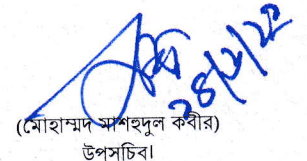 ২৪/২/২২
(মোহাম্মদ আশহুদুল কবীর)
উপসচিব।